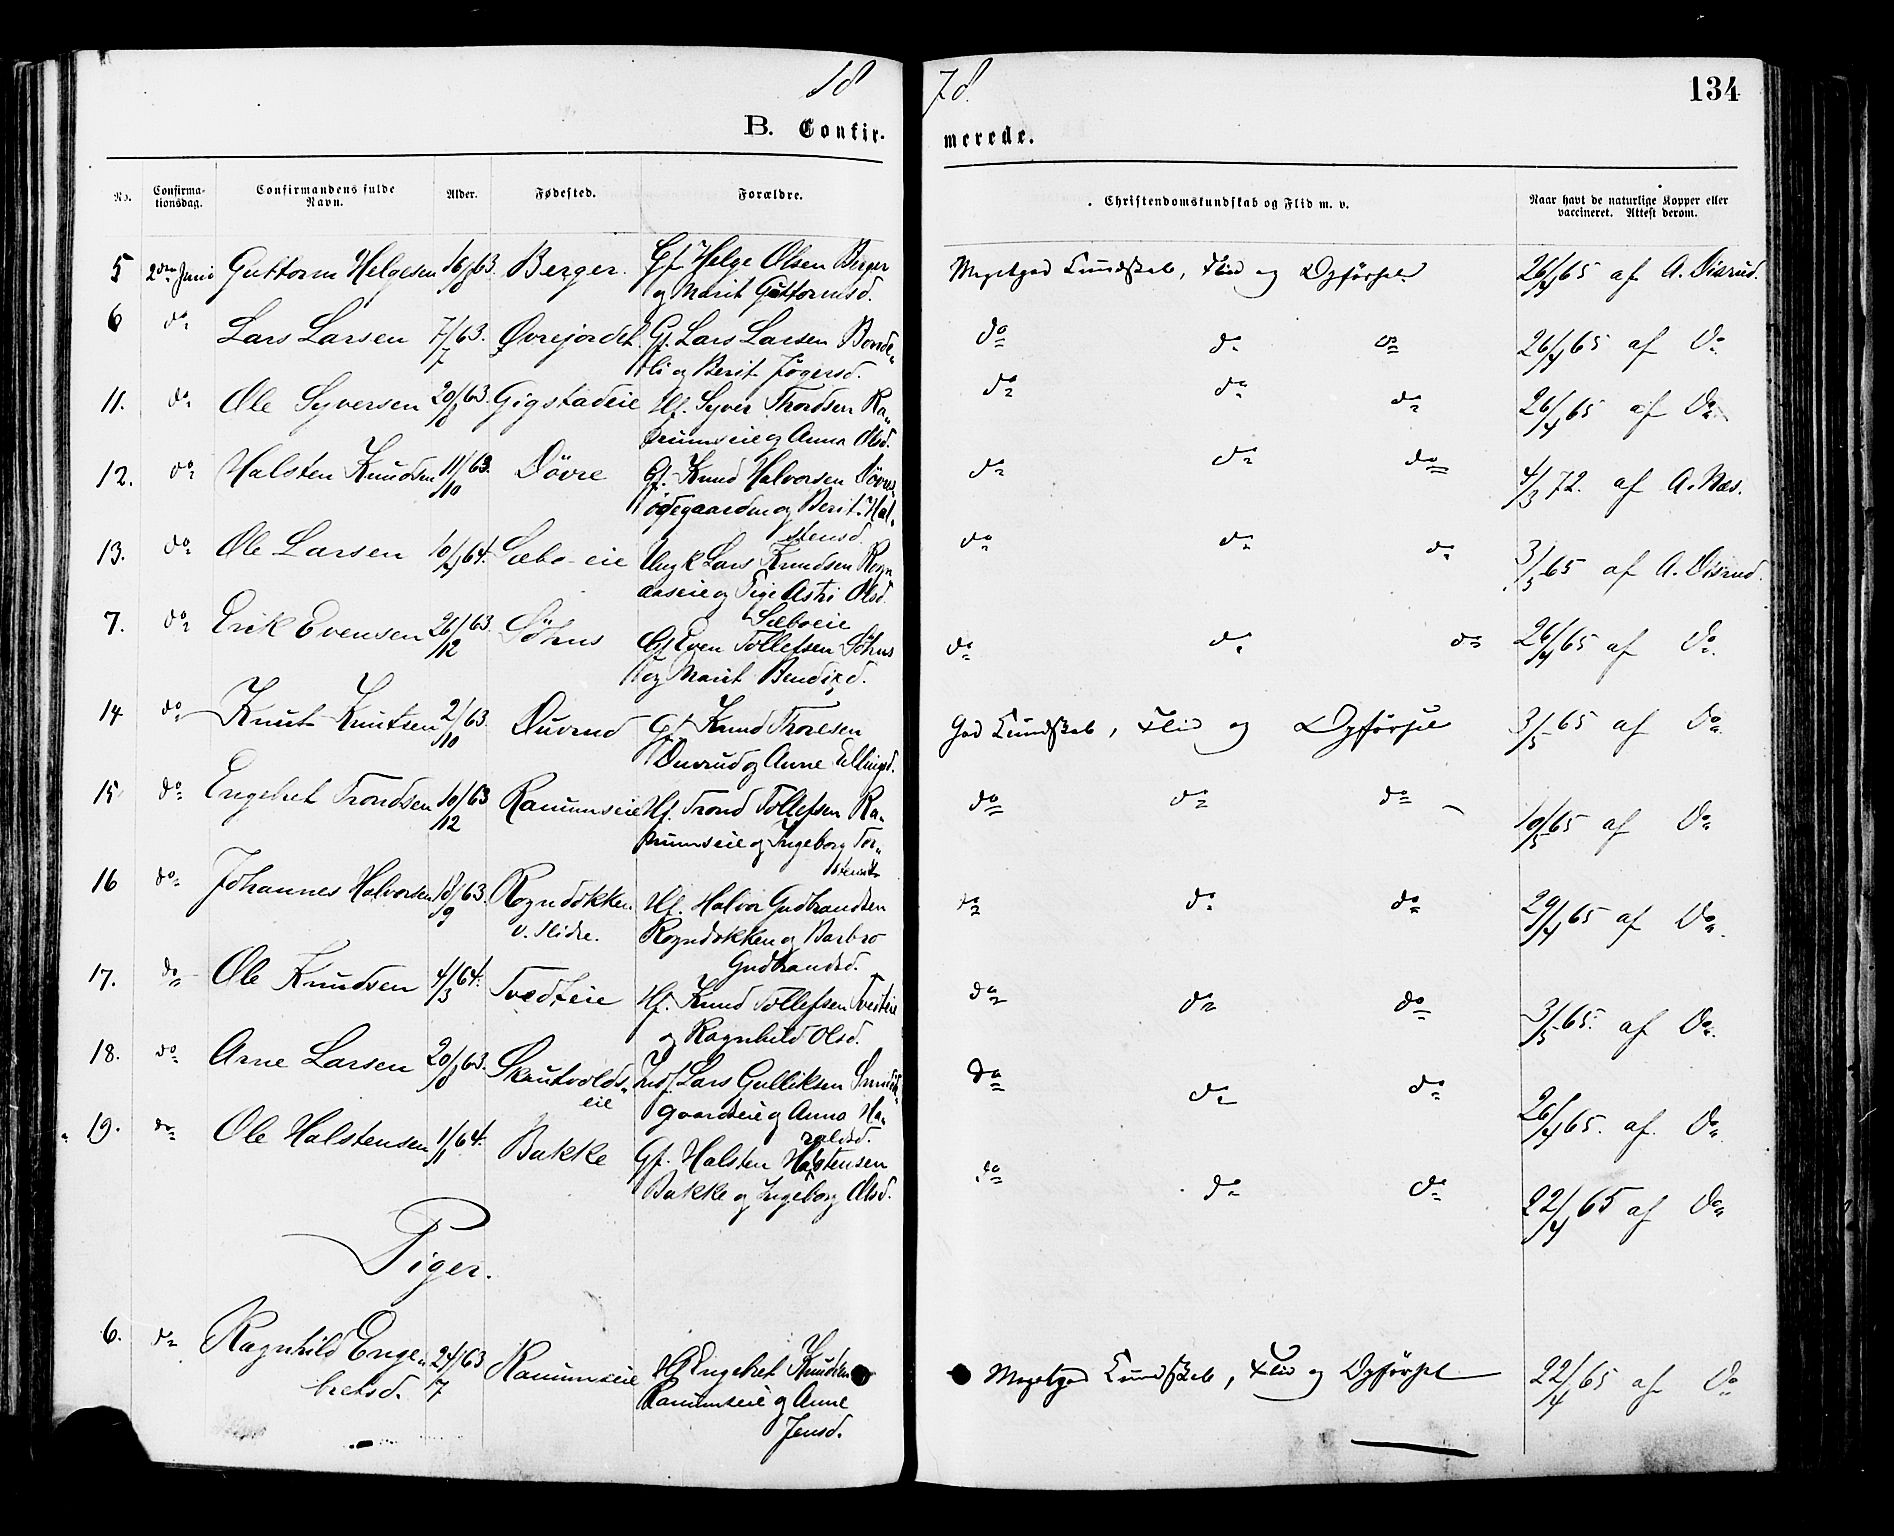 18 78.
134
B. Confir- merede.
No. Confirma-tionsdag. Confirmandens fulde Navn. Alder. Fødested. Forældre. Christendomskundskab og Flid m. v. Naar havt de naturlige Kopper eller vaccineret. Attest derom.
5 2den Juni Guttorm Helgesen 16/8 63. Berger. Gf. Helge Olsen Berger Megetgod Kundskab, Flid og Opførsel 26/4 65 af A. Disrud.
og Marit Guttormsd.
6 do Lars Larsen 7/7 63. Øvrejordet Gf. Lars Larsen Bonde- do do do 26/4 65 af Do
li og Berit Jøgersd.
11. do Ole Syversen 20/8 63. Gigstadeie Hf. Syver Thordsen Ra- do do do 26/4 65 af Do
numseie og Anna Olsd.
12. do Halsten Knudsen 11/10 63. Døvre Gf. Knud Halvorsen Døvre- do do do 4/3 72. af A. Næs.
ødegaarden og Berit Hal-
stensd.
13. do Ole Larsen 10/4 64. Sæbo-eie Ungk Lars Knudsen Rogn do do do 3/5 65 af A. Disrud.
aaseie og Pige Astri Olsd.
Sæboeie
7. do Erik Evensen 26/12 63. Söhus Gf. Even Tollefsen Söhus do do do 26/4 65 af Do
og Marit Bendixd.
14 do Knut Knutsen 2/10 63. Duvrud Gf. Knud Thorlsen God Kundskab, Flid og Opførsel 3/5 65 af Do
Duvrud og Anne Ellingsd.
15 do Engebret Trondsen 10/12 63 Ranumseie Hf. Trond Tollefsen Ra- do do do 10/5 65 af Do
numseie og Ingeborg Tor-
stensd.
16 do Johannes Halvorsen 18/9 63. Rogndokken Hf. Halvor Gudbrandsen do do do 29/4 65 af Do
v. Slidre. Rogndokken og Barbro
Gudbrandsd.
17. do Ole Knudsen 4/3 64. Tvedteie Hf. Knud Tollefsen Tvedteie do do do 3/5 65. af Do
og Ragnhild Olsd.
18. do Arne Larsen 20/8 63. Skrutvolds- Indf. Lars Gulliksen do do do 26/4 65. af Do
eie gaardseie og Anna Ha-
raldsd.
19. do Ole Halstensen 1/1 64. Bakke Gf. Halsten Halstensen do do do 22/4 65 af Do
Bakke og Ingeborg Olsd.
Piger.
6. do Ragnhild Enge- 24/7 63 Ranumseie Hf. Engebret Knudsen Megetgod Kundskab, Flid og Opførsel 22/4 65 af Do
bretsd. Ranumseie og Anne
Jensd.